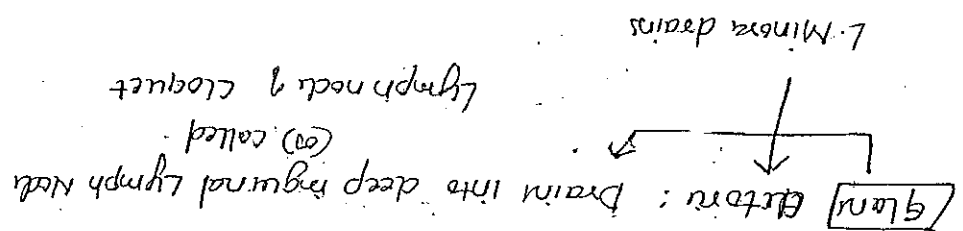 Glans clitoris : Drains into deep inguinal Lymph Node
(or) called
Lymph node of Cloquet
L. Minora drains